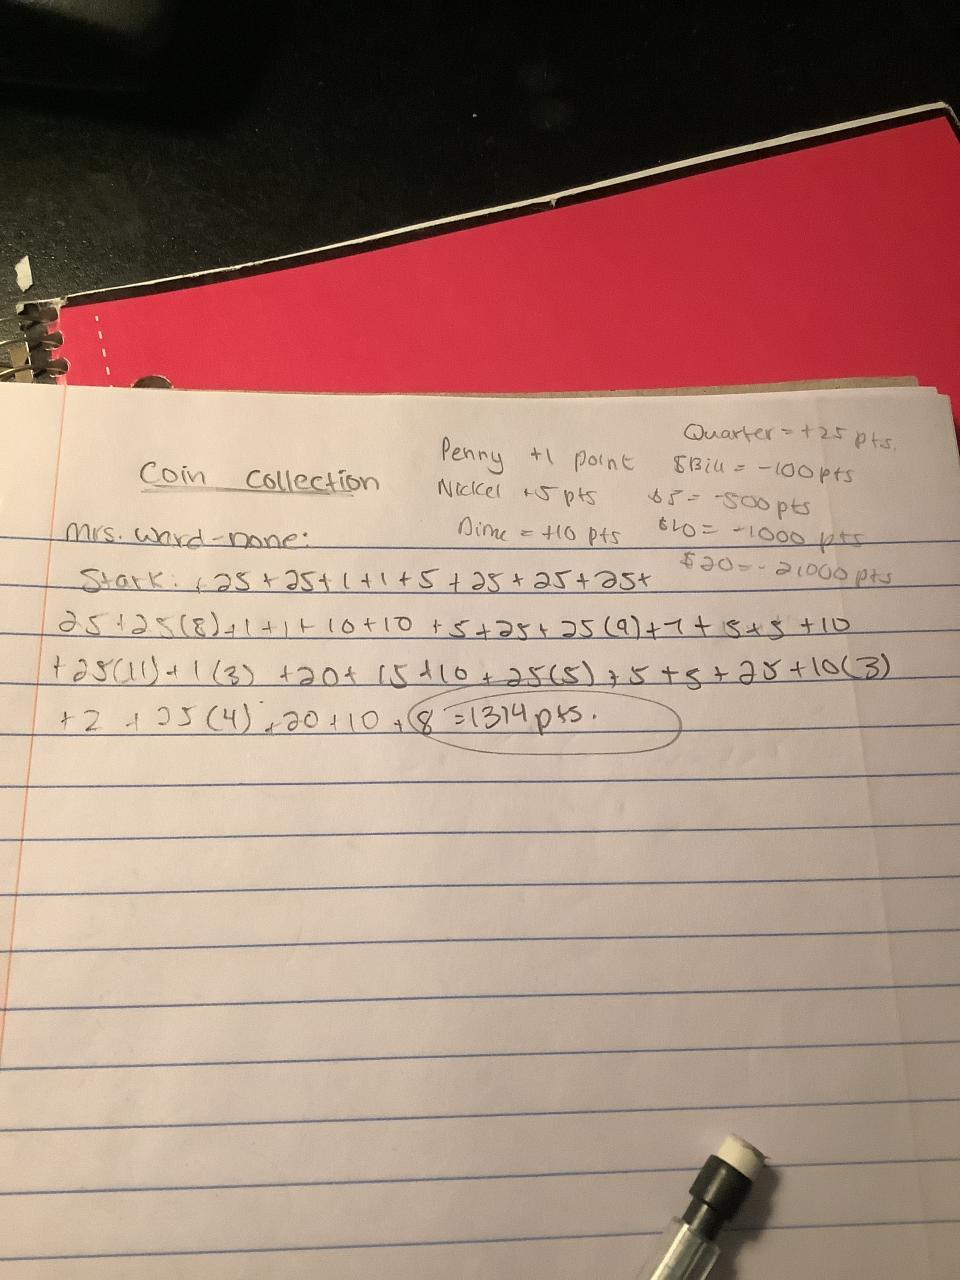 Coin Collection
Penny +1 point
Nickel +5 pts
Dime = +10 pts
Quarter = +25 pts.
$Bill = -100 pts
$5 = -500 pts
$10 = -1000 pts
$20 = -2,000 pts
Mrs. Ward-none:
Stark: +25+25+1+1+5+25+25+25+
25+25(8)+1+1+10+10+5+25+25(9)+7+5+5+10
+25(11)+1(3)+20+15+10+25(5)+5+5+25+10(3)
+2+25(4)+20+10+8=1314pts.